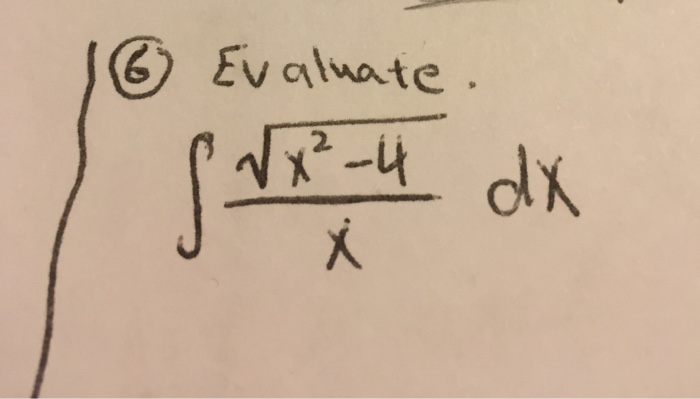 ⑥ Evaluate.
∫ √(x² -4) / x dx